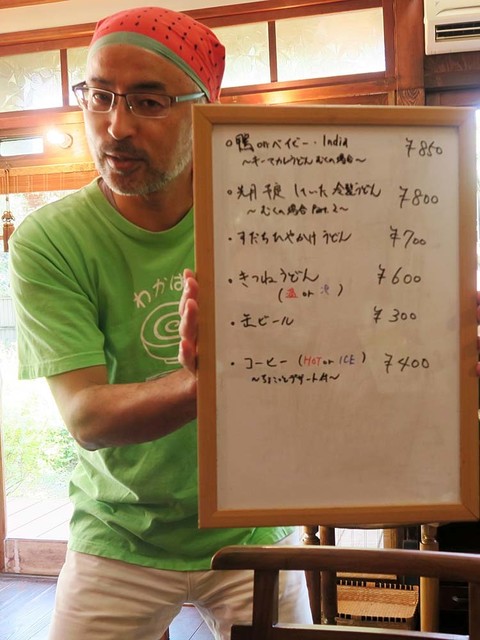 鴨 on ベイビー・India ¥850
〜キーマカレーうどん むくの場合〜
していた 釜製うどん ¥800
〜むくの場合 Part.2〜
すだちひやかけうどん ¥700
きつねうどん ¥600
(温 or 冷)
缶ビール ¥300
コーヒー (HOT or ICE) ¥400
〜ちょこっとデザート付〜
わかば